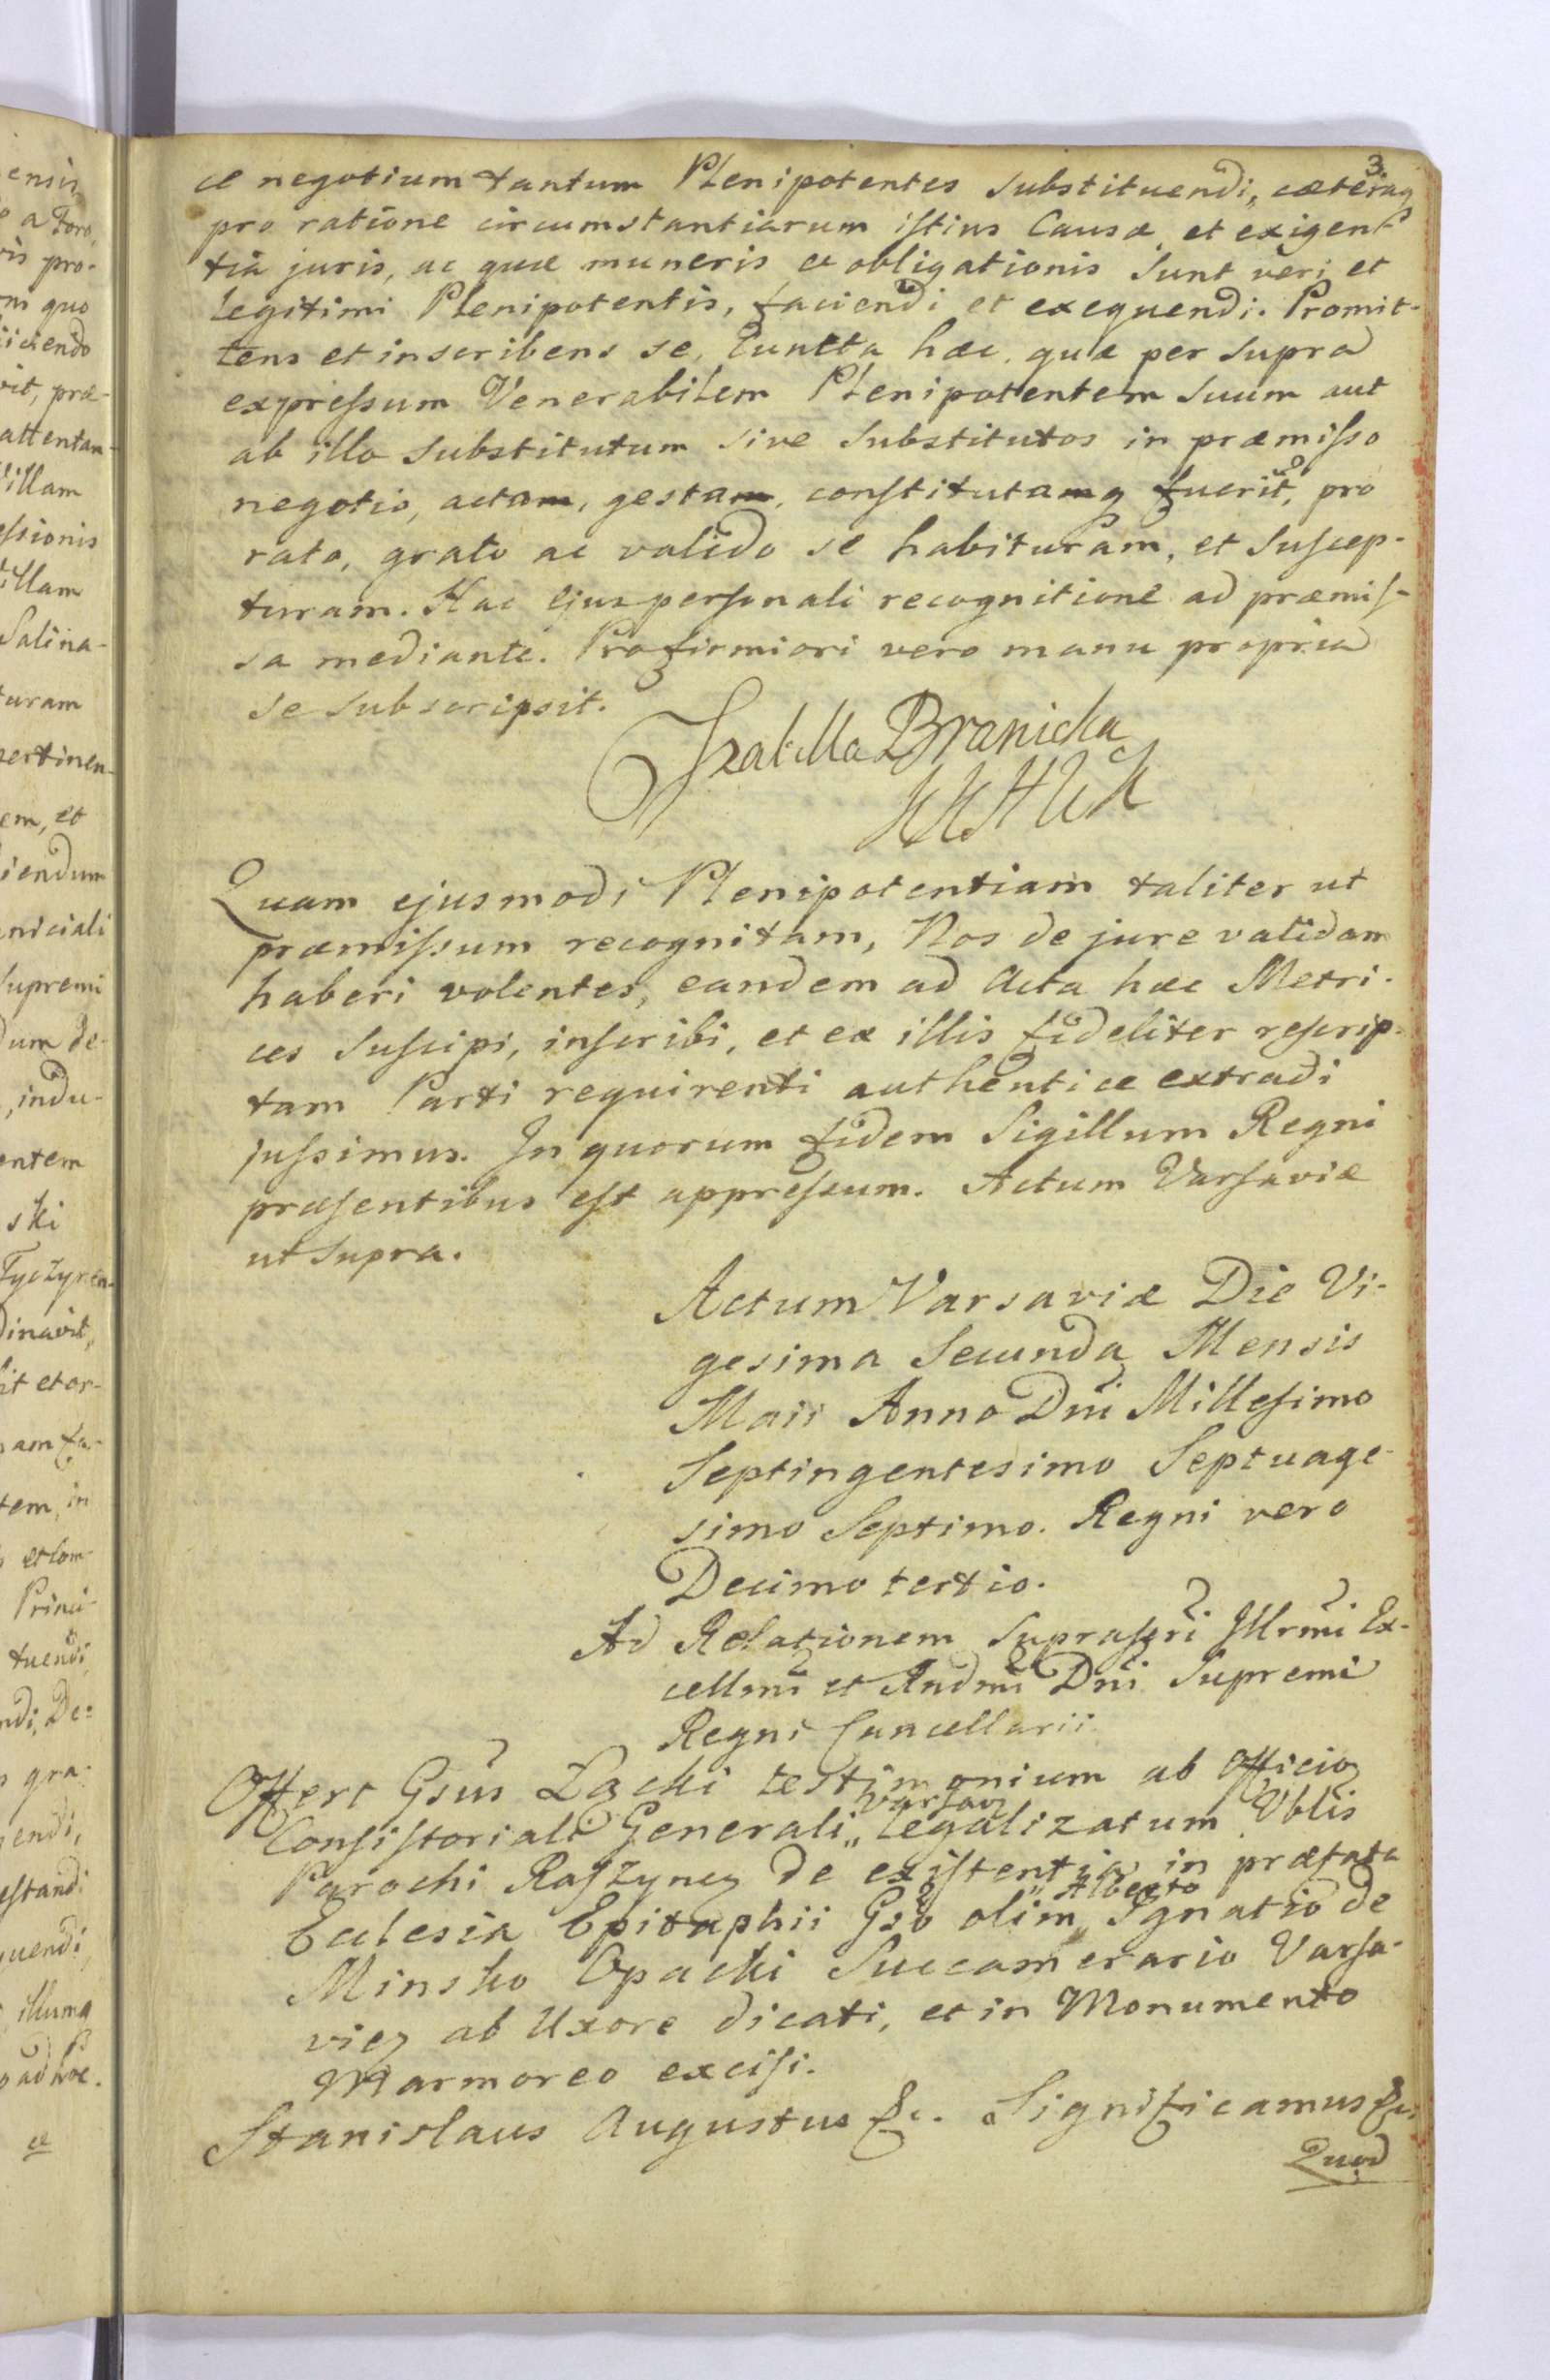 3
æ negotium tantum Plenipotentes substituendi, cæteraq
pro ratione circumstantiarum istius Causæ, et exigen-
tia juris, ac quæ muneris et obligationis sunt veri et
legitimi Plenipotentis, faciendi et exequendi. Promit-
tens et inscribens se, Cuncta hæc, quæ per supra
expressum Venerabilem Plenipotentem suum aut
ab illo substitutum sive substitutos in præmisso
negotio, actam, gestam, constitutamq fuerit, pro
rato, grato ac valido se habituram, et suscep-
turam. Hac ejus personali recognitione ad præmis-
sa mediante. Pro firmiori vero manu propria
se subscripsit.
Izabella Branicka
KKHWK
Quam ejusmodi Plenipotentiam taliter ut
præmissum recognitam, Nos de jure validam
haberi volentes, eandem ad Acta hæc Metri-
ces suscipi, inscribi, et ex illis fideliter rescrip-
tam Parti requirenti authentice extradi
jussimus. In quorum fidem Sigillum Regni
præsentibus est appressum. Actum Varsaviæ
ut supra.
Actum Varsaviæ Die Vi-
gesima Secunda Mensis
Maii Anno Dni Millesimo
Septingentesimo Septuage-
simo Septimo. Regni vero
Decimo tertio.
Ad Relationem suprascri Illrmi Ex-
cellmi et Rndmi Dni Supremi
Regni Cancellarii.
Offert Gsus Łącki testimonium ab Officio
Consistoriali Generali Varsav legalizatum Vblis
Parochi Raszynen de existentia in præfata
Ecclesia Epitaphii Gso olim Alberto Ignatio de
Minsko Opacki Succamerario Varsa-
vien ab Uxore dicati, et in Monumento
Marmoreo excisi.
Stanislaus Augustus &c. Significamus &c.
Quod